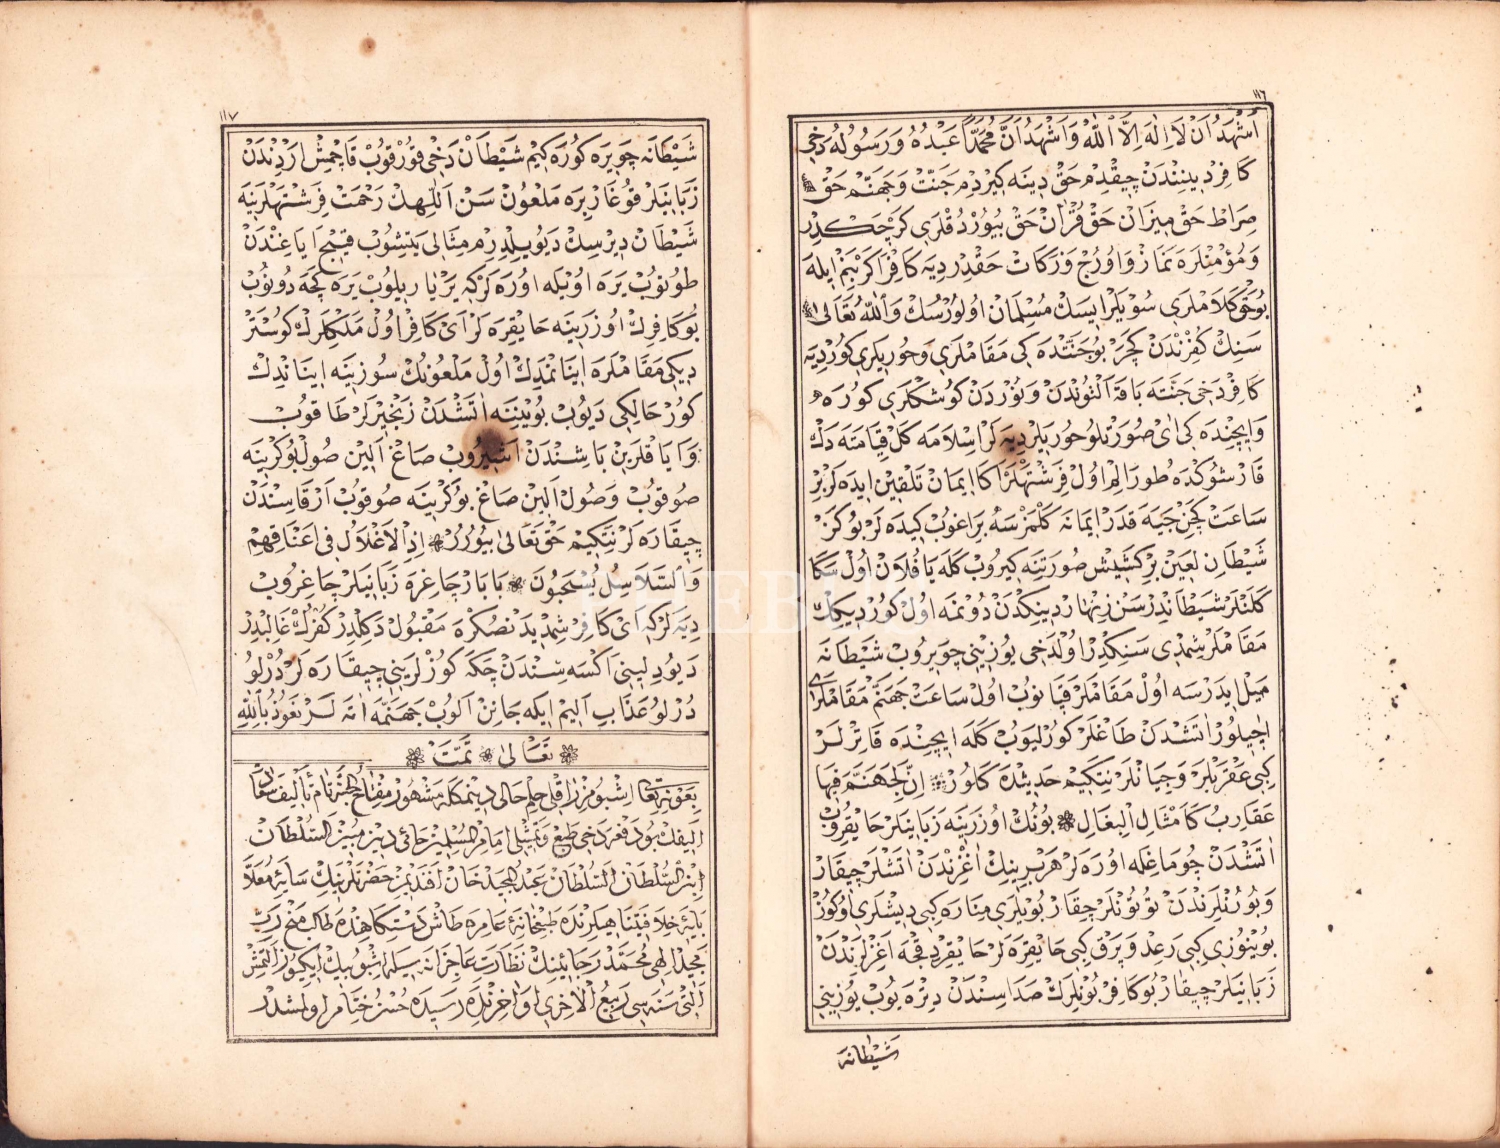 ١١٦
اَشْهَدُ اَنْ لَا اِلٰهَ اِلَّا اللّٰهُ وَاَشْهَدُ اَنَّ مُحَمَّدًا عَبْدُهُ وَرَسُولُهُ دَخِى
كافر دينندن چيقدم حق دينه كيردم جنت و جهنم حق
صراط حق ميزان حق قرآن حق بيوردقلرى كرچكدر
و مؤمنلره نماز و اورج و زكات حقدر ديه كافر اكر بنم ايله
بو حق كلاملرى سويلرايسك مسلمان اولورسك والله تعالى
سنك كفرندن كچر بو جنتده كى مقاملرى و حوريلرى كور ديه
كافر دخى جنته باقه آلتوندن و نوردن كوشكلرى كوره
و ايچنده كى اى صورتلو حوريلر ديه لر اسلامه كل قيامته دك
قارشوكده طورالم اول فرشتهلر اكا ايمان تلقين ايده لر بر
ساعت كچنجيه قدر ايمانه كلمزسه براغوب كيده لر بو كز
شيطان لعين بر كشيش صورتنه كيروب كله يا فلان اول سكا
كلنلر شيطاندر سن زنهار دينكدن دونمه اول كورديكك
مقاملر شمدى سنكدر اول دخى يوزينى چويروب شيطانه
ميل ايدرسه اول مقاملر قپانوب اول ساعت جهنم مقاملرى
اچيلور اتشدن طاغلر كورليوب كله ايچنده قاترلر
كبى عقربلر و چيانلر نتكيم حديثده كلور ان لجهنم فيها
عقارب كامثال البغال بونك اوزرينه زبانيلر حايقروب
اتشدن چوماغله اوره لر هر برينك اغزندن اتشلر چيقار
و بورنلرندن توتونلر چيقار بويلرى مناره كبى ديشلرى اوكوز
بوينوزى كبى رعد و برق كبى حايقره لر حايقردقجه اغزلرندن
زبانيلر چيقار بو كافر بونلرك صداسندن دتره يوب يوزينى
شيطانه
١١٧
شيطانه چويره كوره كيم شيطان دخى قورقوب قاچمش اردندن
زبانيلر قوغار بره ملعون سن اللهك رحمت فرشتهلرينه
شيطان ديرسك ديو يلدرم مثالى يتشوب قيچ اياغندن
طونوب يره اويله اوره لر كه ير ياريلوب يره كچه دونوب
بو كافرك اوزرينه حايقره لر اى كافر اول ملكلرك كوستر
ديكى مقاملره اينانمدك اول ملعونك سوزينه ايناندك
كور حالكى ديوب بوينينه اتشدن زنجيرلر طاقوب
و اياقلرين باشندن اشيروب صاغ الين صول بوكرينه
صوقوب و صول الين صاغ بوكرينه صوقوب ارقاسندن
چيقاره لر نتكيم حق تعالى بيورر اذ الاغلال فى اعناقهم
والسلاسل يسحبون بابار چاغره زبانيلر چاغروب
ديه لر كه اى كافر شمديدنصكره مقبول دكلدر كفرك غالبدر
ديو دلينى اكسه سندن چكه كوزلرينى چيقاره لر درلو
درلو عذاب اليم ايكه جانن الوب جهنمه اته لر نعوذ بالله
تعالى تمت
بعونه تعالى اشبو مزراقلى علم حالى دينمكله مشهور مفتاح الجنه نام تأليف
اليفك بو دفعه دخى طبع و تمثيلى امام المسلمين حامى دين مبين السلطان
ابن السلطان السلطان عبد المجيد خان افندمز حضرتلرينك سايۀ معلا
پايۀ خلافتپناهيلرنده طبخانۀ عامره طاش دستكاهنده طالب منح رب
مجيد الهى محمد رجائينك نظارت عاجزانه سيله اشبو بيك ايكيوز التمش
التى سنه سى ربيع الاخرى اواخرنده رسيدۀ حسن ختام اولمشدر